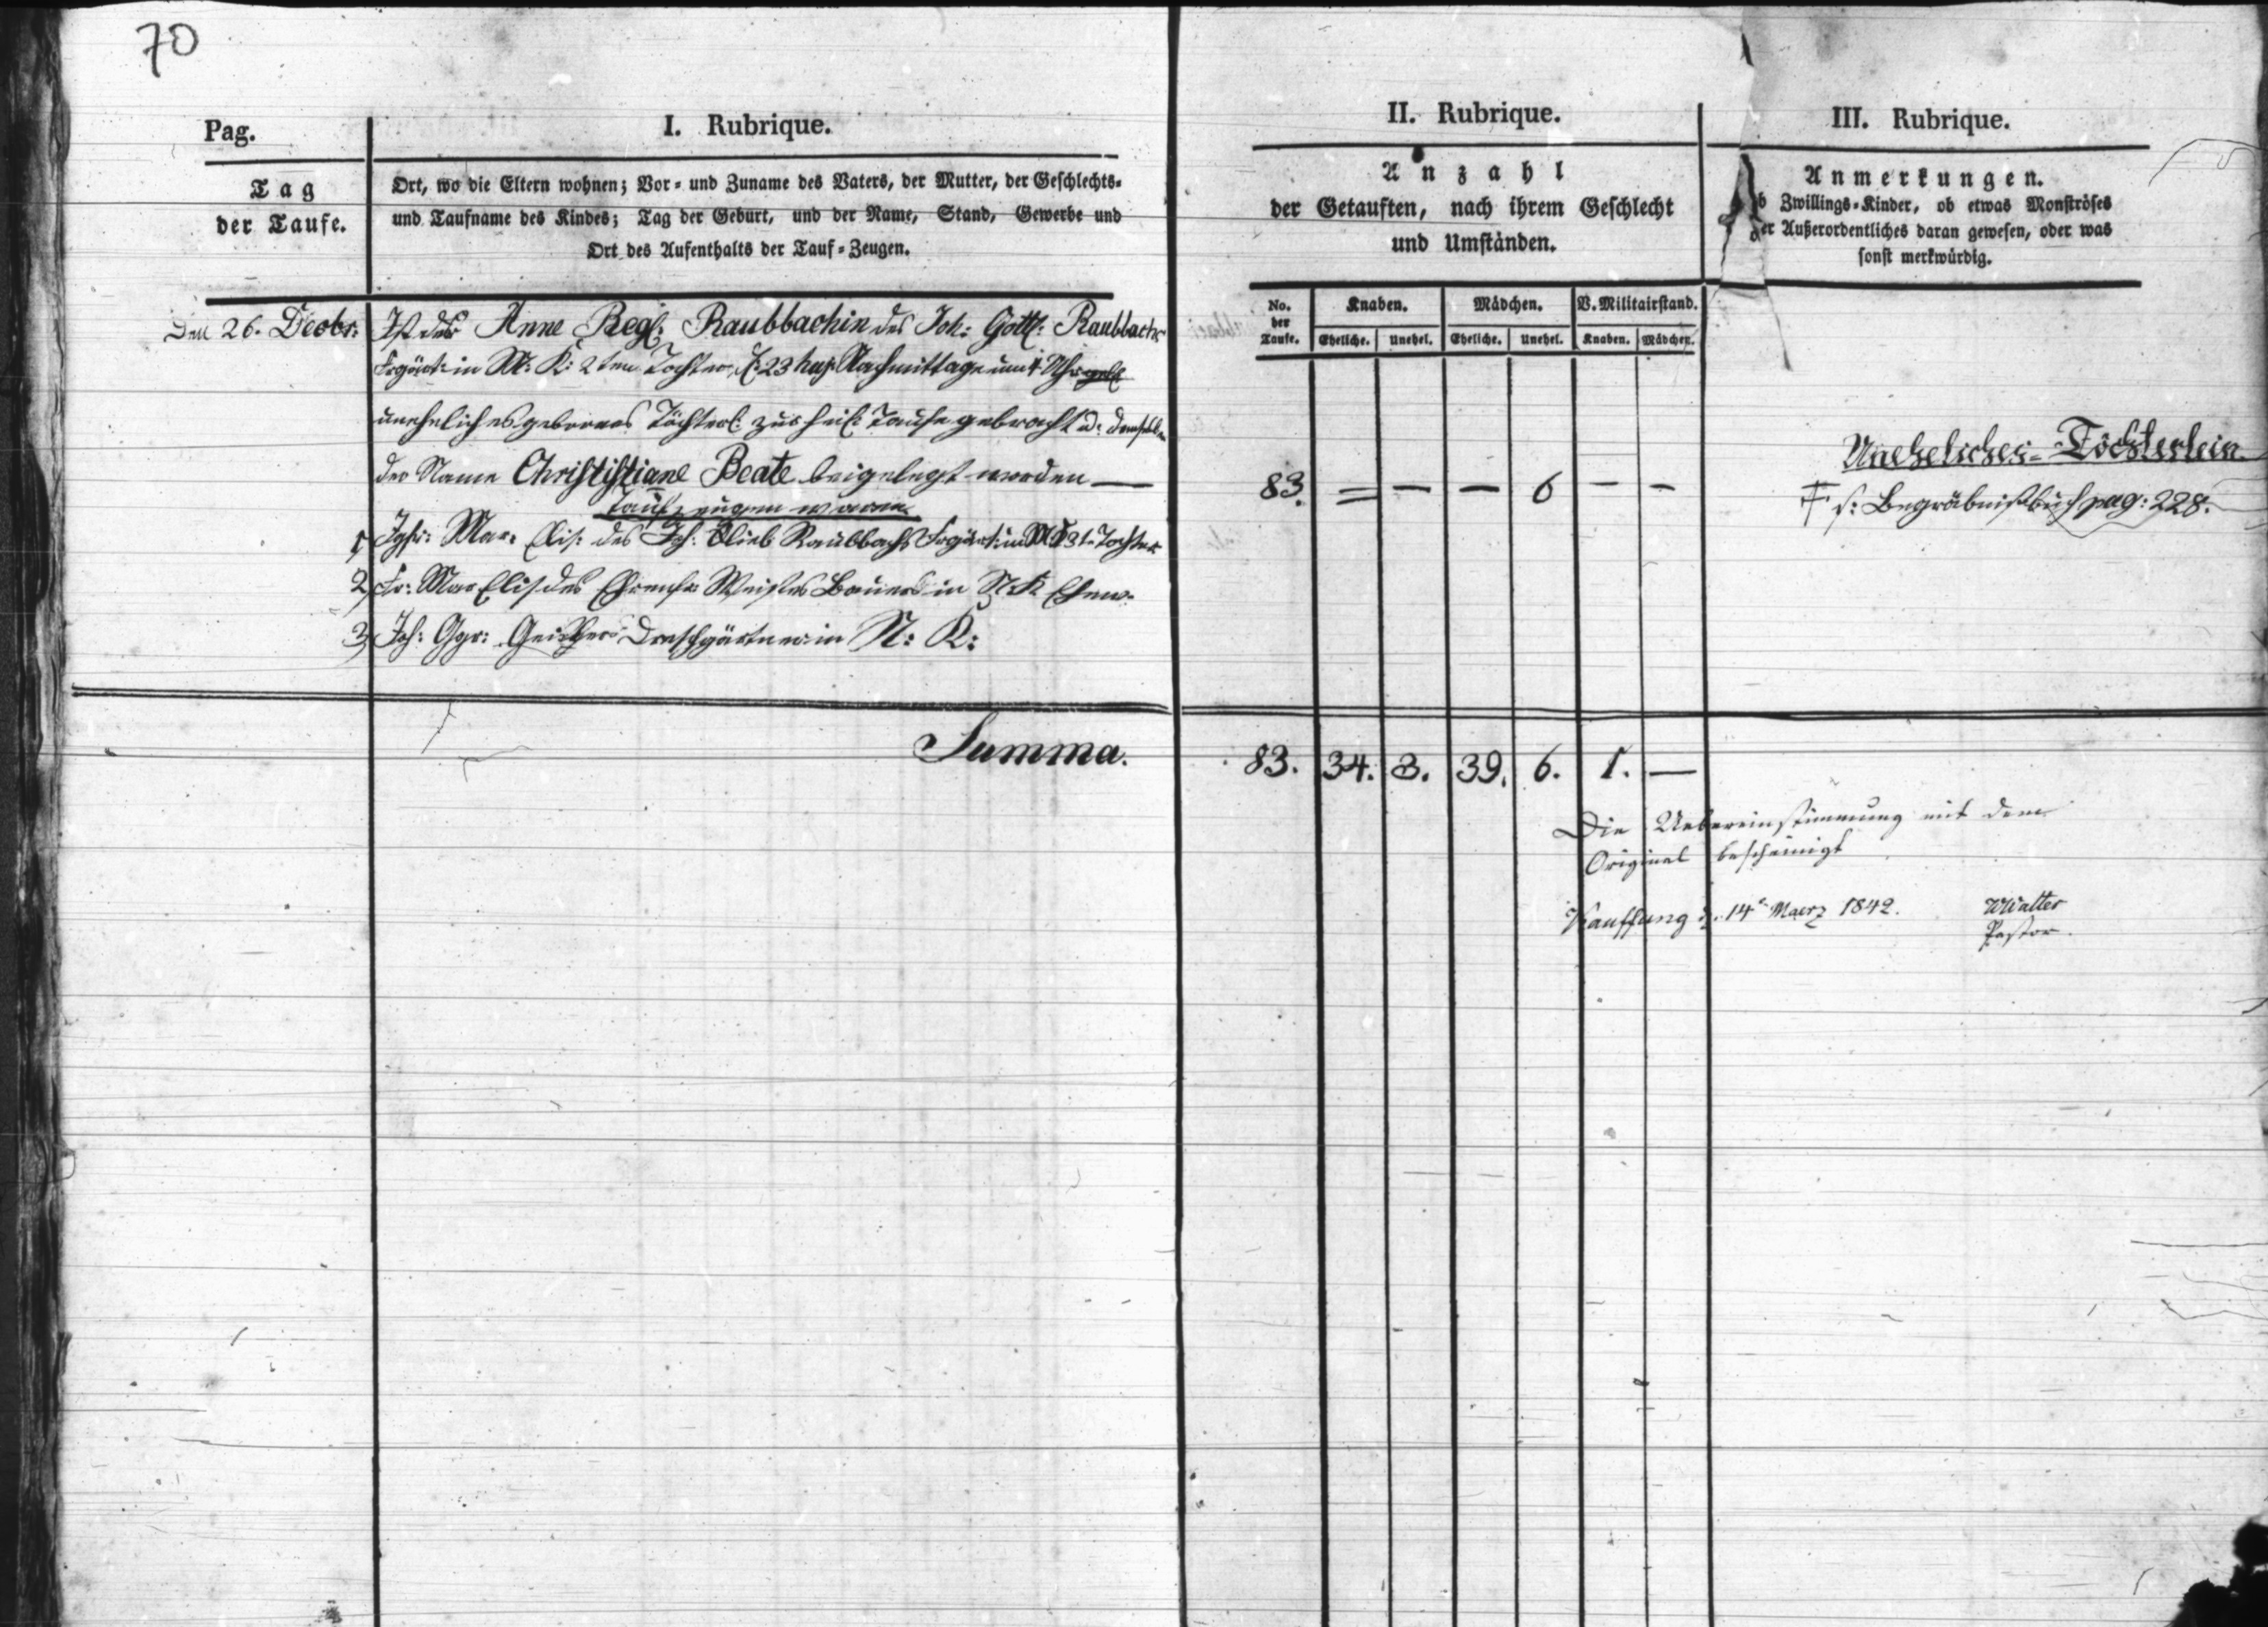 70
Pag.
I. Rubrique.
II. Rubrique.
III. Rubrique.
Tag
der Taufe.
Ort, wo die Eltern wohnen; Vor- und Zuname des Vaters, der Mutter, der Geschlechts-
und Taufname des Kindes; Tag der Geburt, und der Name, Stand, Gewerbe und
Ort des Aufenthalts der Tauf-Zeugen.
Anzahl
der Getauften, nach ihrem Geschlecht
und Umständen.
Anmerkungen.
b Zwillings-Kinder, ob etwas Monströses
er Außerordentliches daran gewesen, oder was
sonst merkwürdig.
No.
der
Taufe.
Knaben.
Mädchen.
V. Militairstand.
Eheliche.
Unehel.
Eheliche.
Unehel.
Knaben.
Mädchen.
Den 26. Decbr:
Ist der Anne Regl: Raubbachin des Joh: Gottl: Raubbachs
Frgärt: in N: K: 2ten Tochter, d: 23 huj: Nachmittage um 4 Uhr
unehelich es gebornes Töchterl: zur heil: Taufe gebracht u: demselben
der Name Christistiane Beate beigelegt worden —
Taufzeugen waren
1 Jgfr: Mar: Elis: des Joh: Raubbachs Frgärt: in Tochter
2, Fr: Mar Elis des Bauers in N K
3, Joh: Ggr: Dreschgärtner in N: K:
83. = — — 6 — —
Uneheliches Töchterlein.
s: Begräbnißbuch pag: 228.
Summa.
83. 34. 3. 39. 6. 1. —
Die Uebereinstimmung mit dem
Original bescheinigt
Kauffung d. 14 Maerz 1842.
Walter
Pastor.